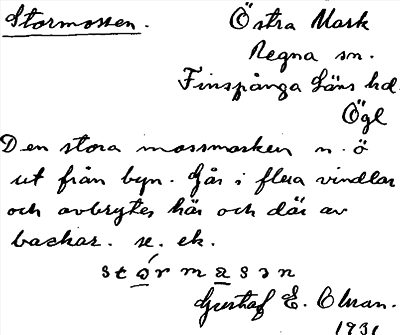 Stormossen.
Östra Mark
Regna sn.
Finspånga läns hd.
Ögl
Den stora mossmarken n. ö
ut från byn. Går i flera vindlar
och avbrytes här och där av
backar. se. ek.
stórmasən
Gustaf E. Olsson.
1931